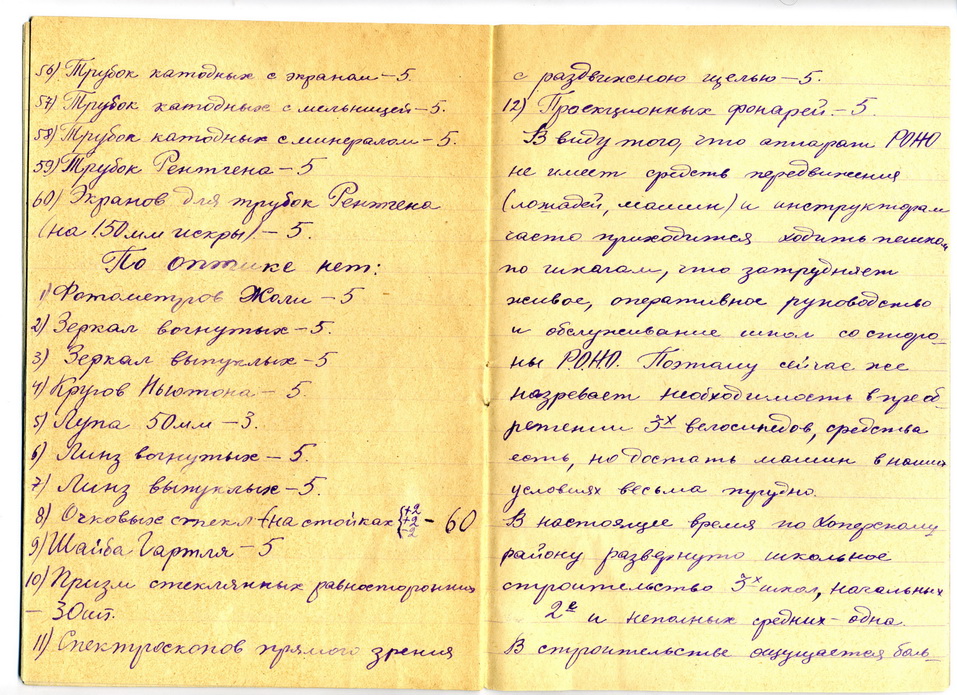 56) Трубок катодных с экраном – 5.
57) Трубок катодных с мельницей – 5.
58) Трубок катодных с минералом – 5.
59) Трубок Рентгена – 5
60) Экранов для трубок Рентгена
(на 150 мм искры) – 5.
По оптике нет:
1) Фотометров Жоли – 5
2) Зеркал вогнутых – 5.
3) Зеркал выпуклых – 5
4) Кругов Ньютона – 5.
5) Лупа 50 мм – 3.
6) Линз вогнутых – 5.
7) Линз выпуклых – 5.
8) Очковых стекл (на стойках {+2 +2 -2 – 60
9) Шайба Гартля – 5
10) Призм стеклянных равносторонних
– 30 шт.
11) Спектроскопов прямого зрения
с раздвижною щелью – 5.
12) Проекционных фонарей. – 5
В виду того, что аппарат РОНО
не имеет средств передвижения
(лошадей, машин) и инструкторам
часто приходится ходить пешком
по школам, что затрудняет
живое, оперативное руководство
и обслуживание школ со сторо-
ны РОНО. Поэтому сейчас же
назревает необходимость в приоб-
ретении 3х велосипедов, средства
есть, но достать машин в наших
условиях весьма трудно.
В настоящее время по Хоперскому
району развернуто школьное
строительство 3х школ, начальных
2е и неполных средних – одна.
В строительстве ощущается боль-